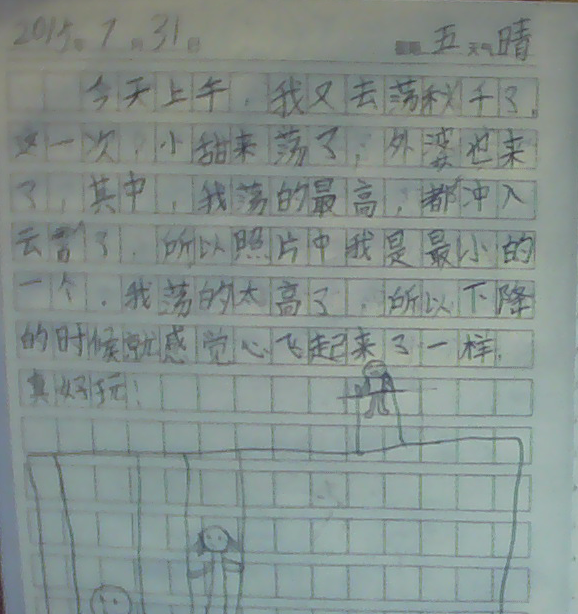 2015年7月31日 星期五 天气晴
今天上午，我又去荡秋千了。
这一次，小甜来荡了，外婆也来
了，其中，我荡的最高，都冲入
云霄了，所以照片中我是最小的
一个，我荡的太高了，所以下降
的时候就感觉心飞起来了一样，
真好玩！